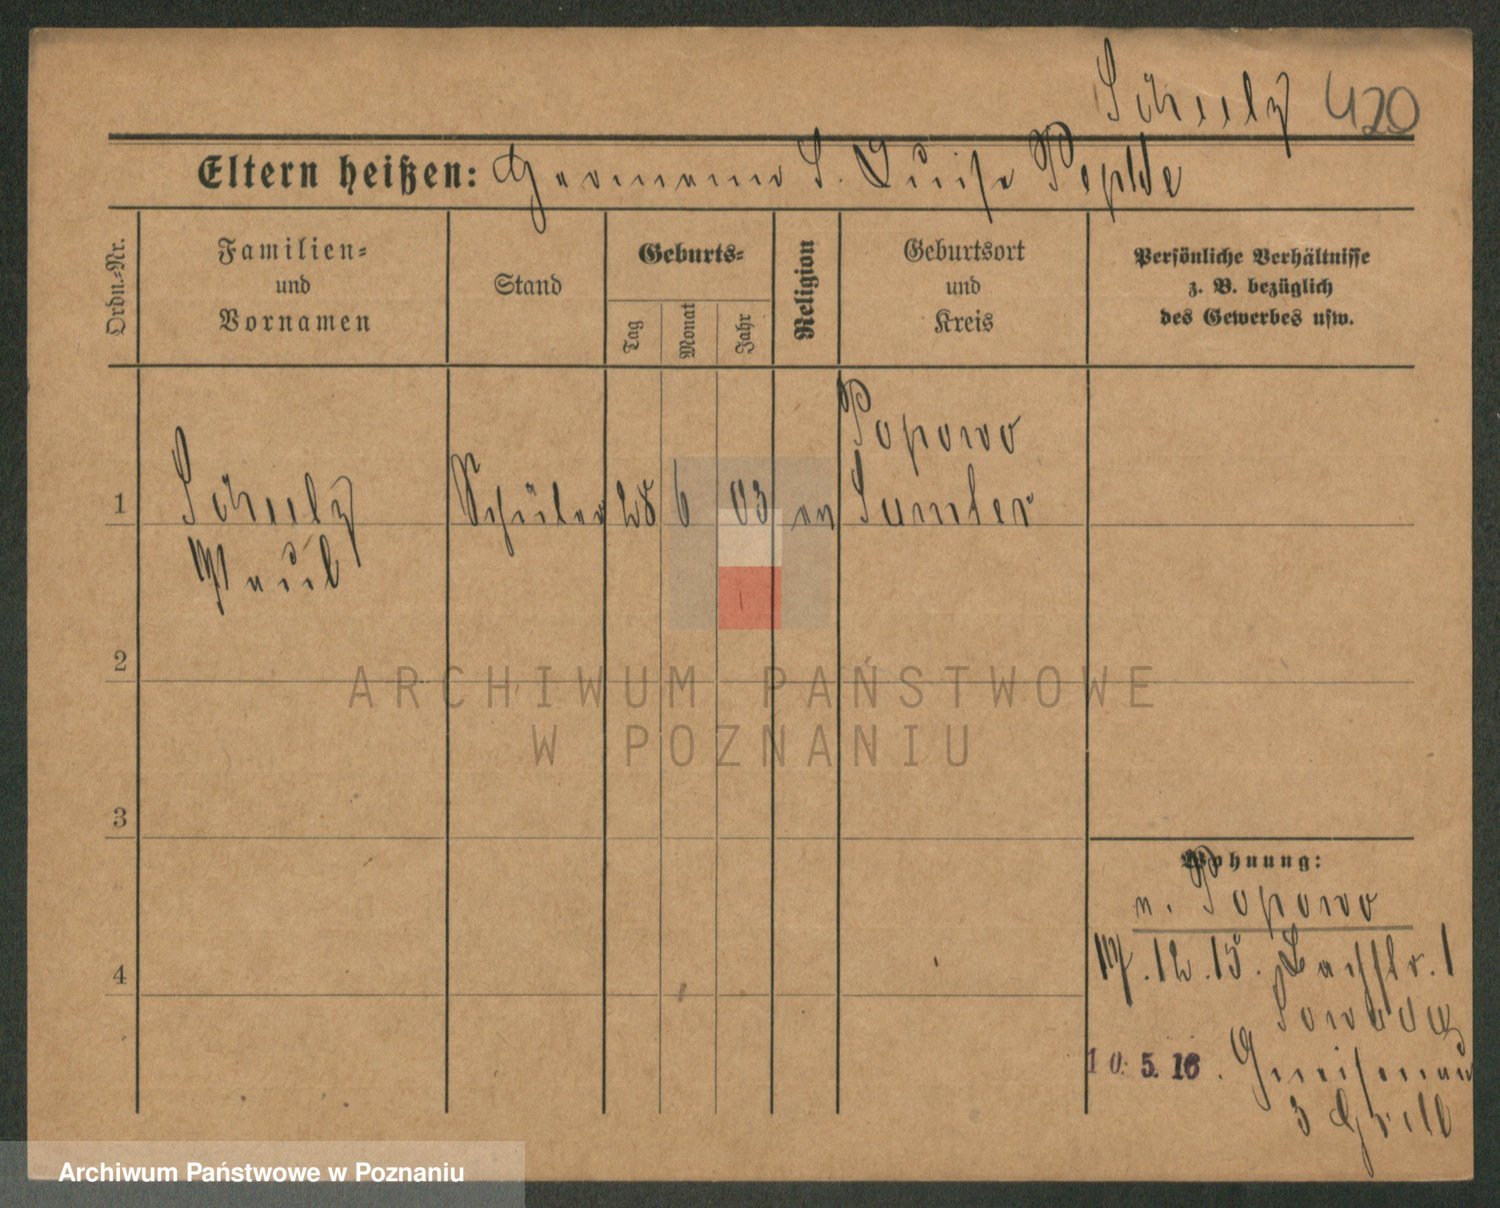 Schulz 420
Eltern heißen: Hermann S. Luise Pepke
Ordn.-Nr.
Familien-
und
Vornamen
Stand
Geburts-
Tag
Monat
Jahr
Religion
Geburtsort
und
Kreis
Persönliche Verhältnisse
z. B. bezüglich
des Gewerbes usw.
Popowo
1 Schulz Schüler 28 6 03 ev Samter
Paul
2
ARCHIWUM PAŃSTWOWE
W POZNANIU
3
Wohnung:
v. Popowo
4
17.12.15. Bachstr. 1
10. 5. 16. Gneisenau
3
Archiwum Państwowe w Poznaniu